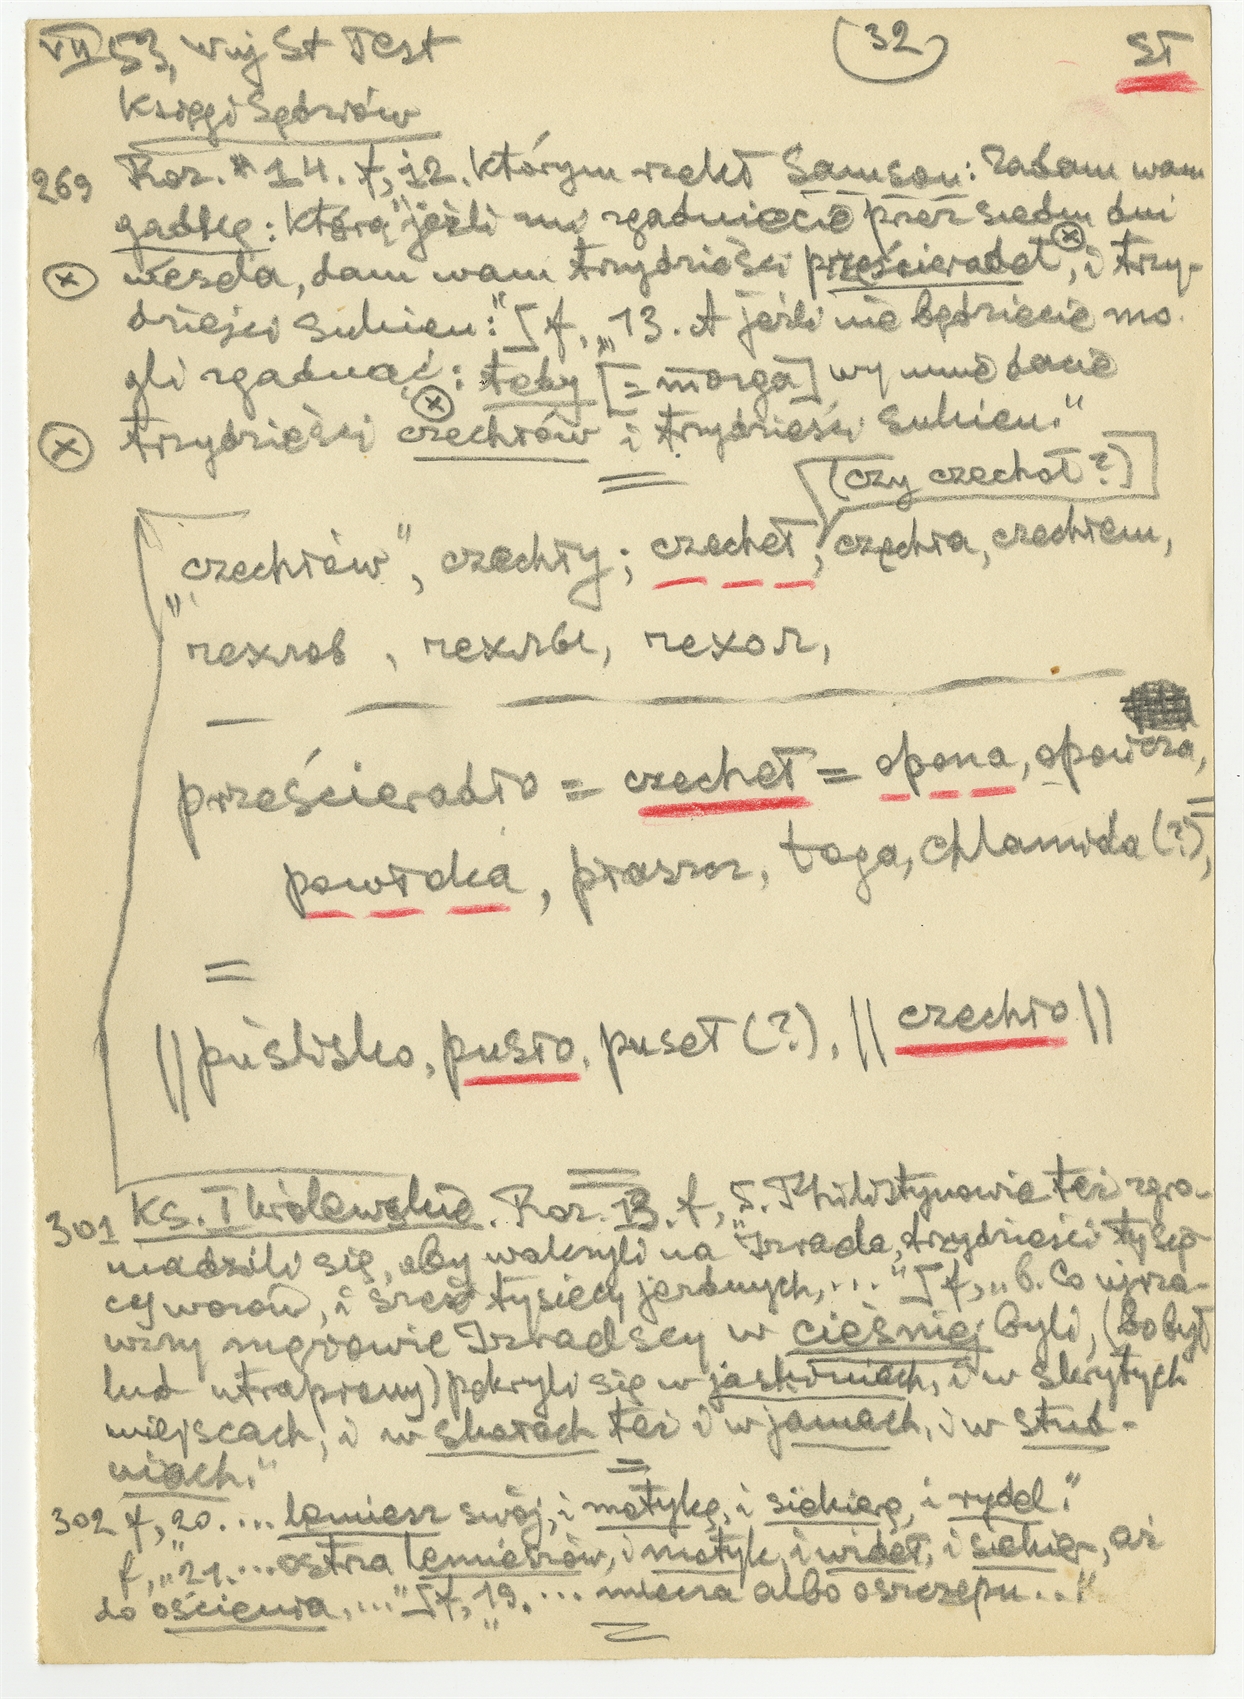 VII 53, Wuj St Test (32) ST
Księgi Sędziów
269 Roz. 14. f, 12. którym rzekł Samson: Zadam wam
gadkę: którą "jeśli mi zgadniecie przez siedm dni
wesela, dam wam trzydzieści prześcieradeł, i trzy-
dzieści sukien:" f, 13. A jeśli nie będziecie mo-
gli zgadnąć: tedy [= morga] wy mnie dacie
trzydzieści czechłów i trzydzieści sukien."
(czy czechoł?)
"czechłów", czechły; czecheł, czechła, czechłem,
чехлов, чехлы, чехол,
prześcieradło = czecheł = opona, opończa,
powłoka, płaszcz, toga, chlamida (?),
=
|| puślisko, pusło, puseł (?), || czechło ||
301 Ks. I Królewskie. Roz. 13. f, 5. Philistynowie też zgro-
madzili się, aby walczyli na Izraela, trzydzieści tysię-
cy wozów, i sześć tysięcy jezdnych, ..." f, " 6. Co ujrza-
wszy mężowie Izraelscy w cieśniej byli, (bo był
lud utrapiony) pokryli się w jaskiniach, i w skrytych
miejscach, i w skałach też i w jamach, i w stud-
niach."
302 f, 20. ... lemiesz swój, i motykę, i siekierę, i rydel."
f, " 21. ... ostrza lemieszów, i motyk, i wideł, i siekier, aż
do ościenia, ..." f, 19. ... miecza albo oszczepu ..."